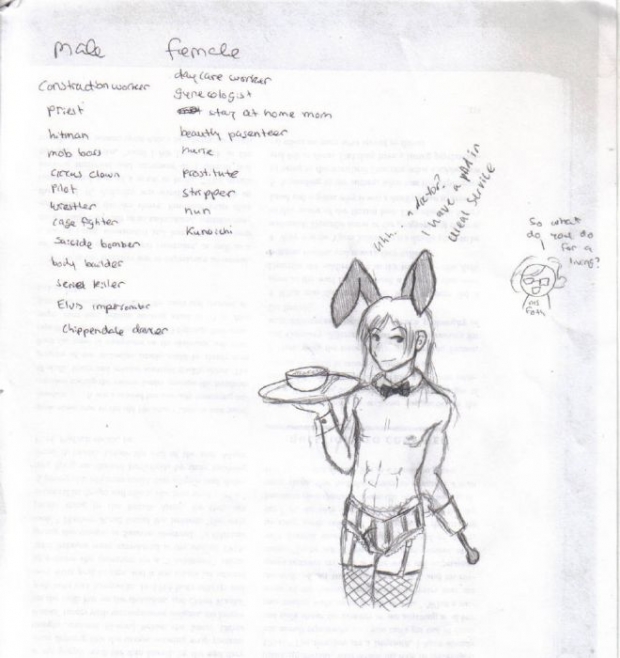 male
construction worker
priest
hitman
mob boss
circus clown
pilot
wrestler
cage fighter
suicide bomber
body builder
serial killer
Elvis
Chippendale
female
day care worker
gynecologist
stay at home mom
beautly
nurse
prostitute
stripper
nun
Kunoichi
a doctor?
I have a phd in
Service
So what
do you do
for a
living?